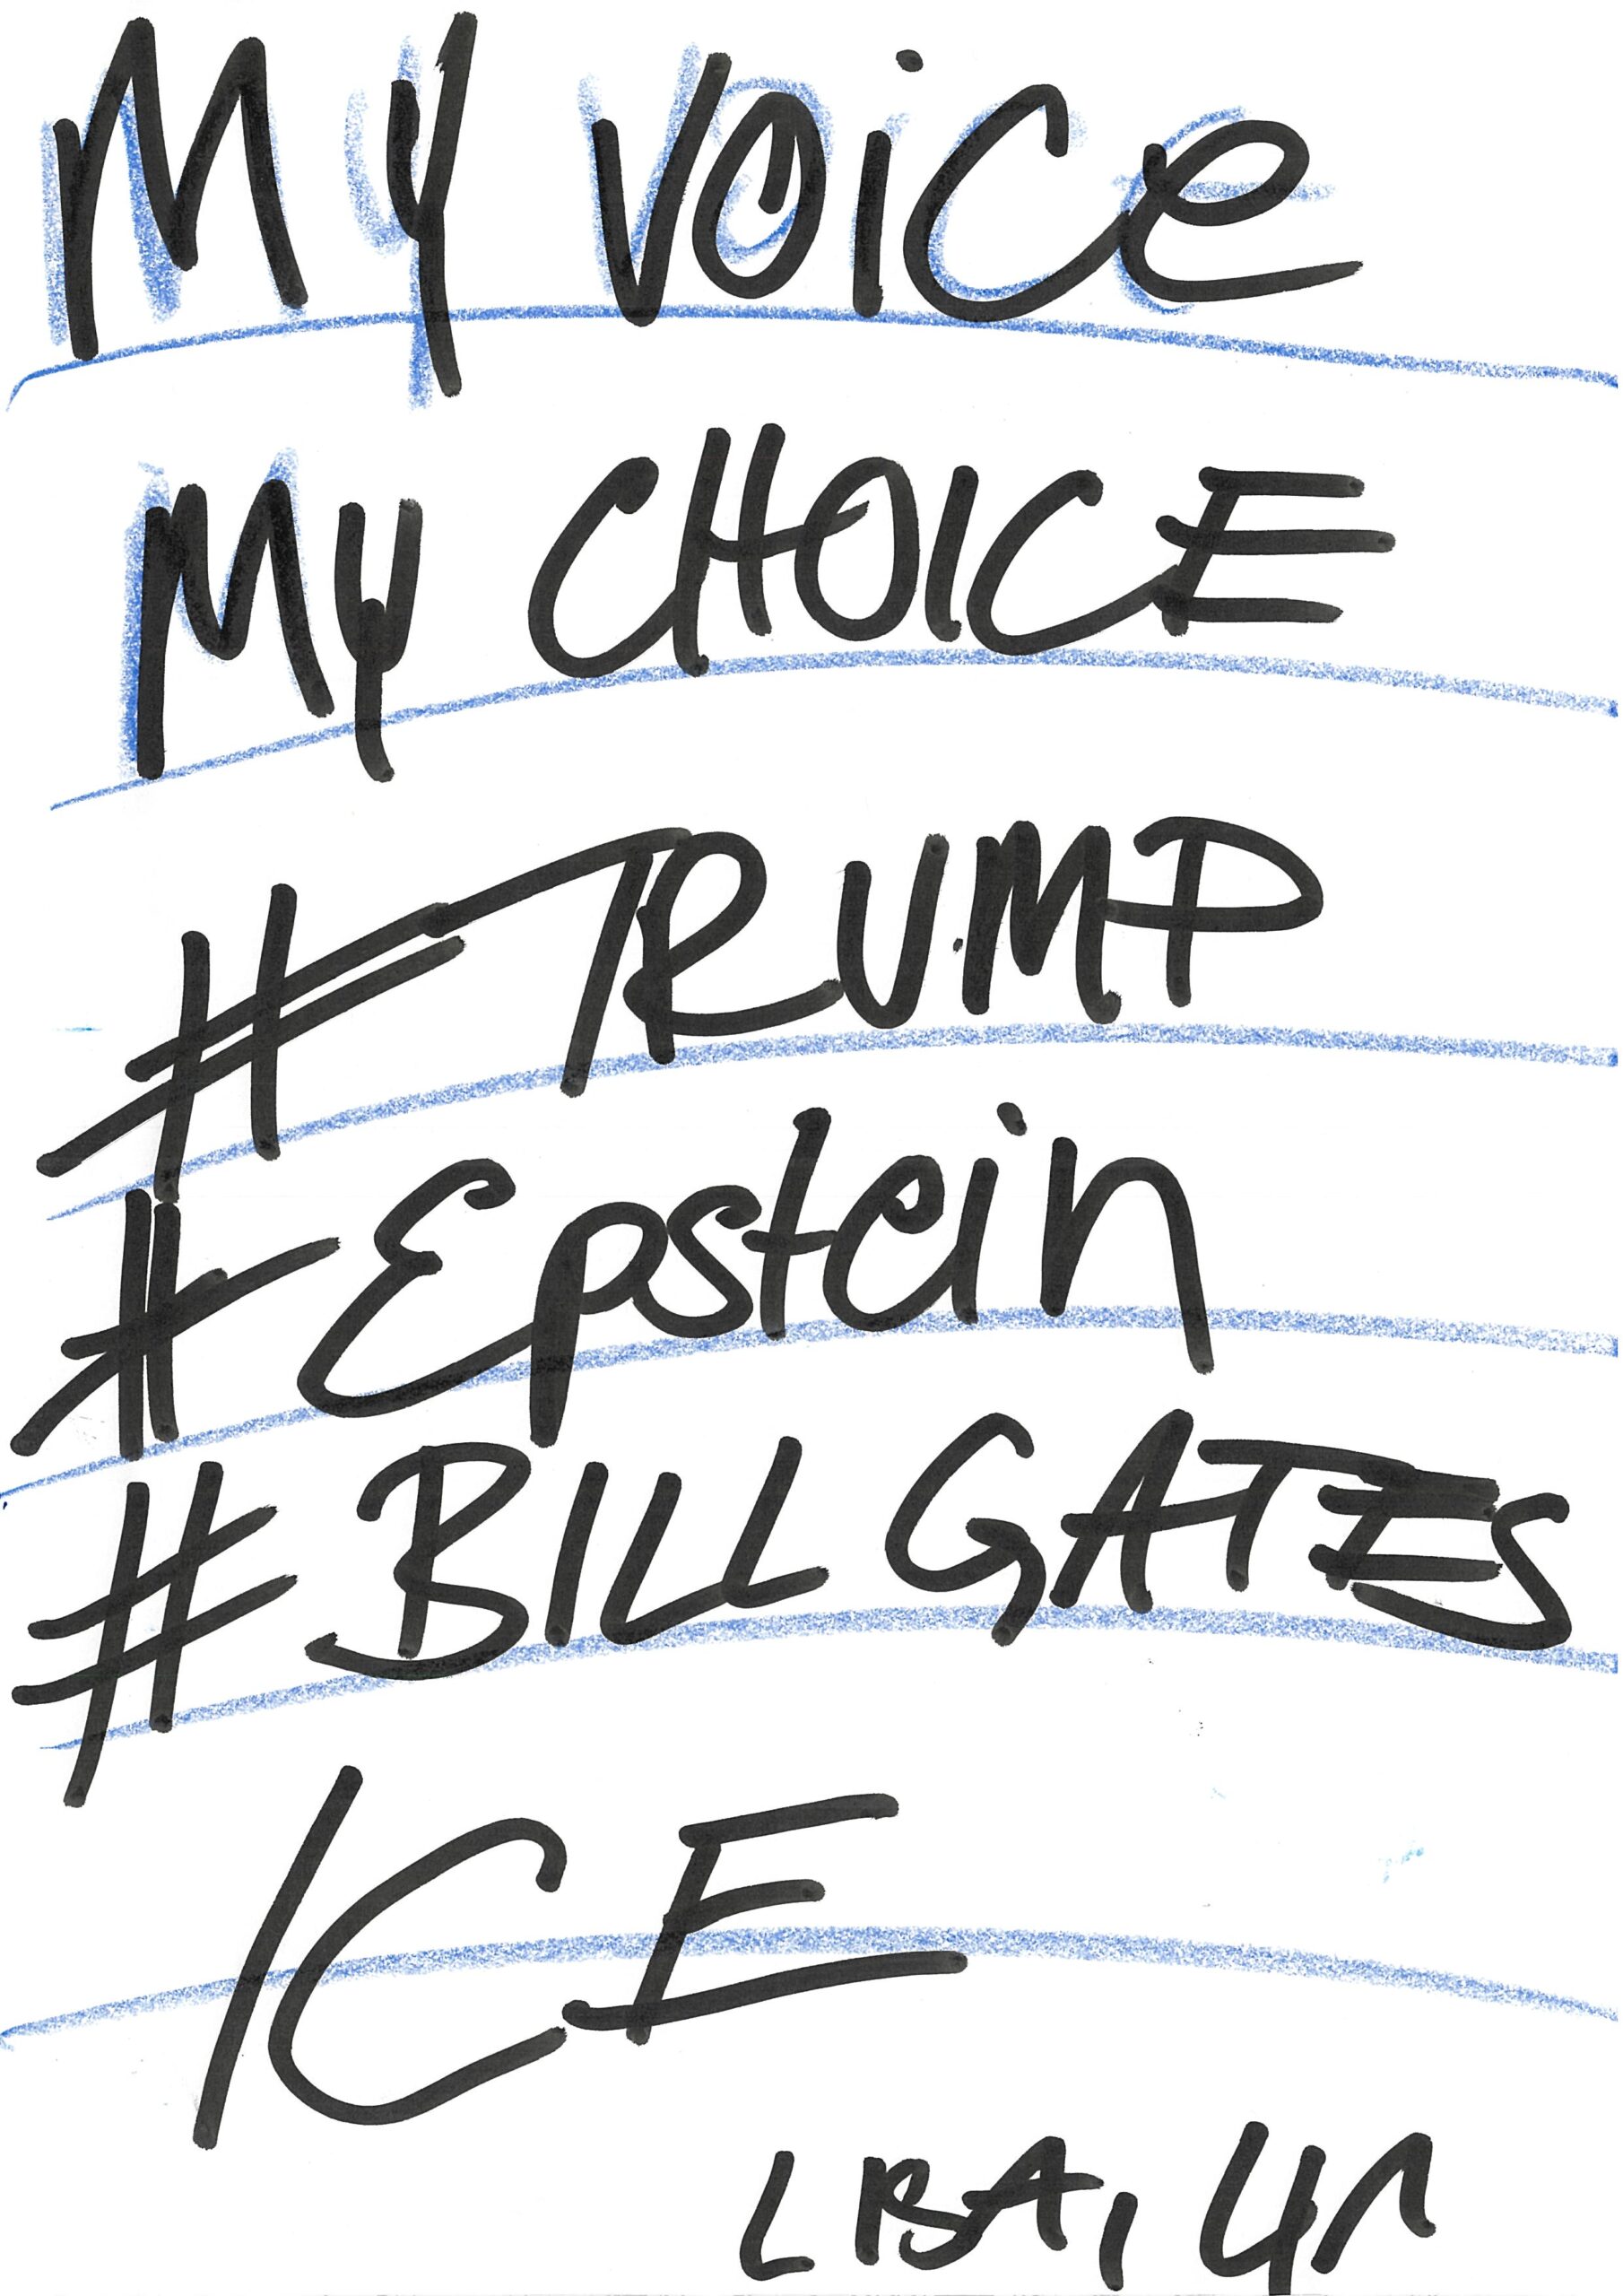 My voice
My CHOICE
#TRUMP
#Epstein
#BILL GATES
ICE
LISA,